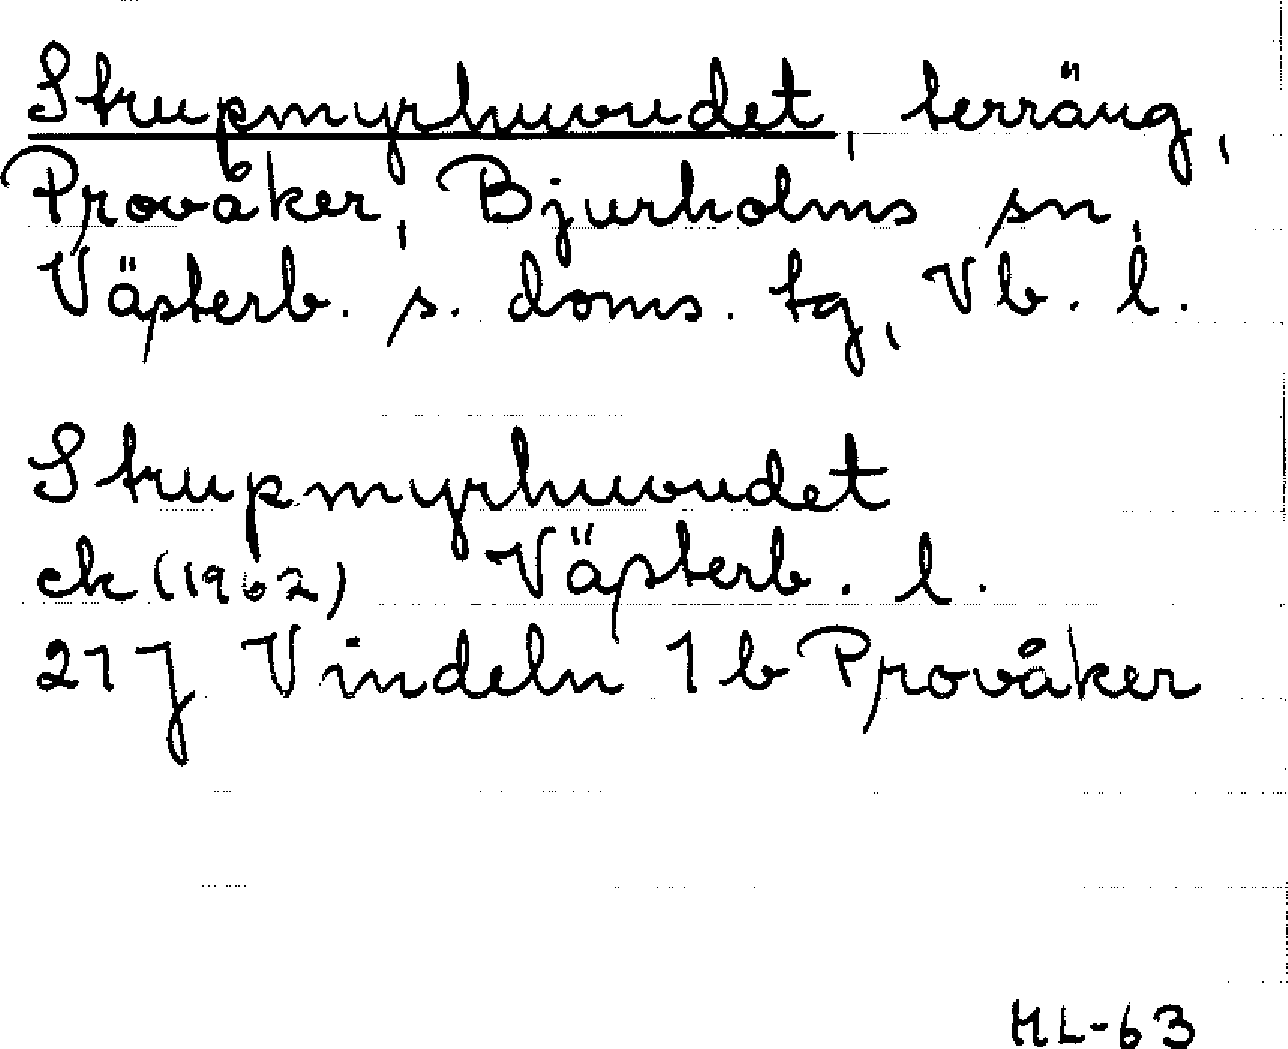 Strupmyrhuvudet, terräng,
Provåker, Bjurholms sn,
Västerb. s. doms. tg, Vb. l.
Strupmyrhuvudet
ek (1962) Västerb. l.
21J Vindeln 1b Provåker
HL-63